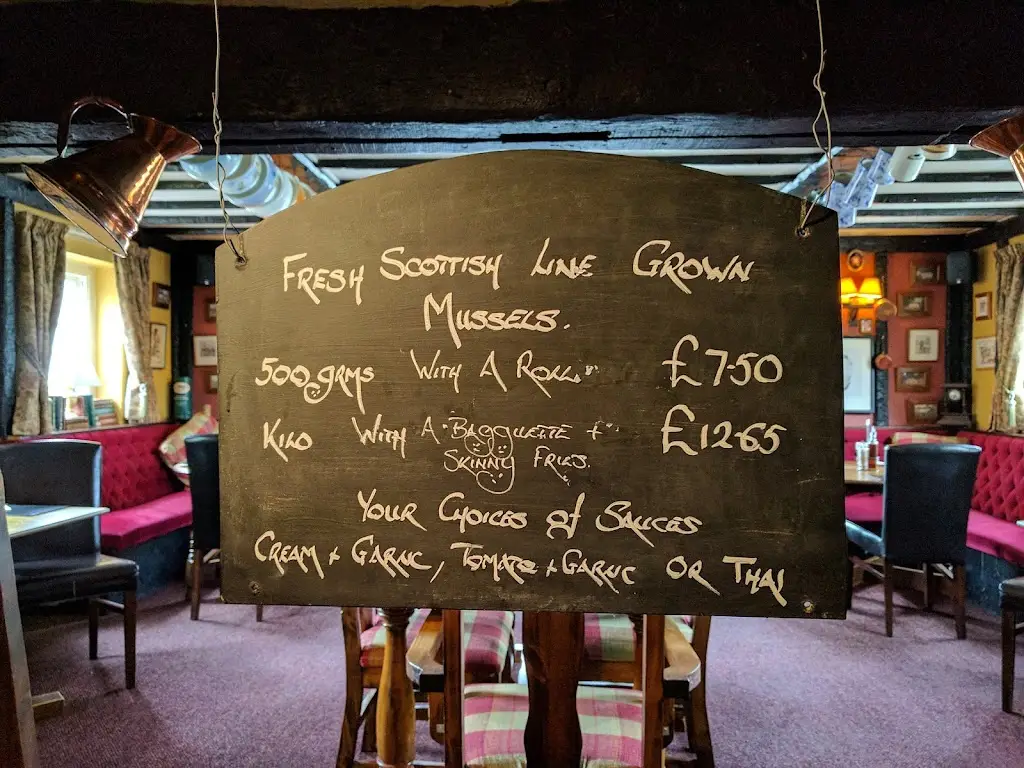 FRESH SCOTTISH LINE GROWN
MUSSELS.
500grms WITH A ROLL £7.50
KILO WITH A BAGGUETTE + £12.65
SKINNY FRIES.
YOUR CHOICES of SAUCES
CREAM + GARLIC, TOMATO + GARLIC OR THAI